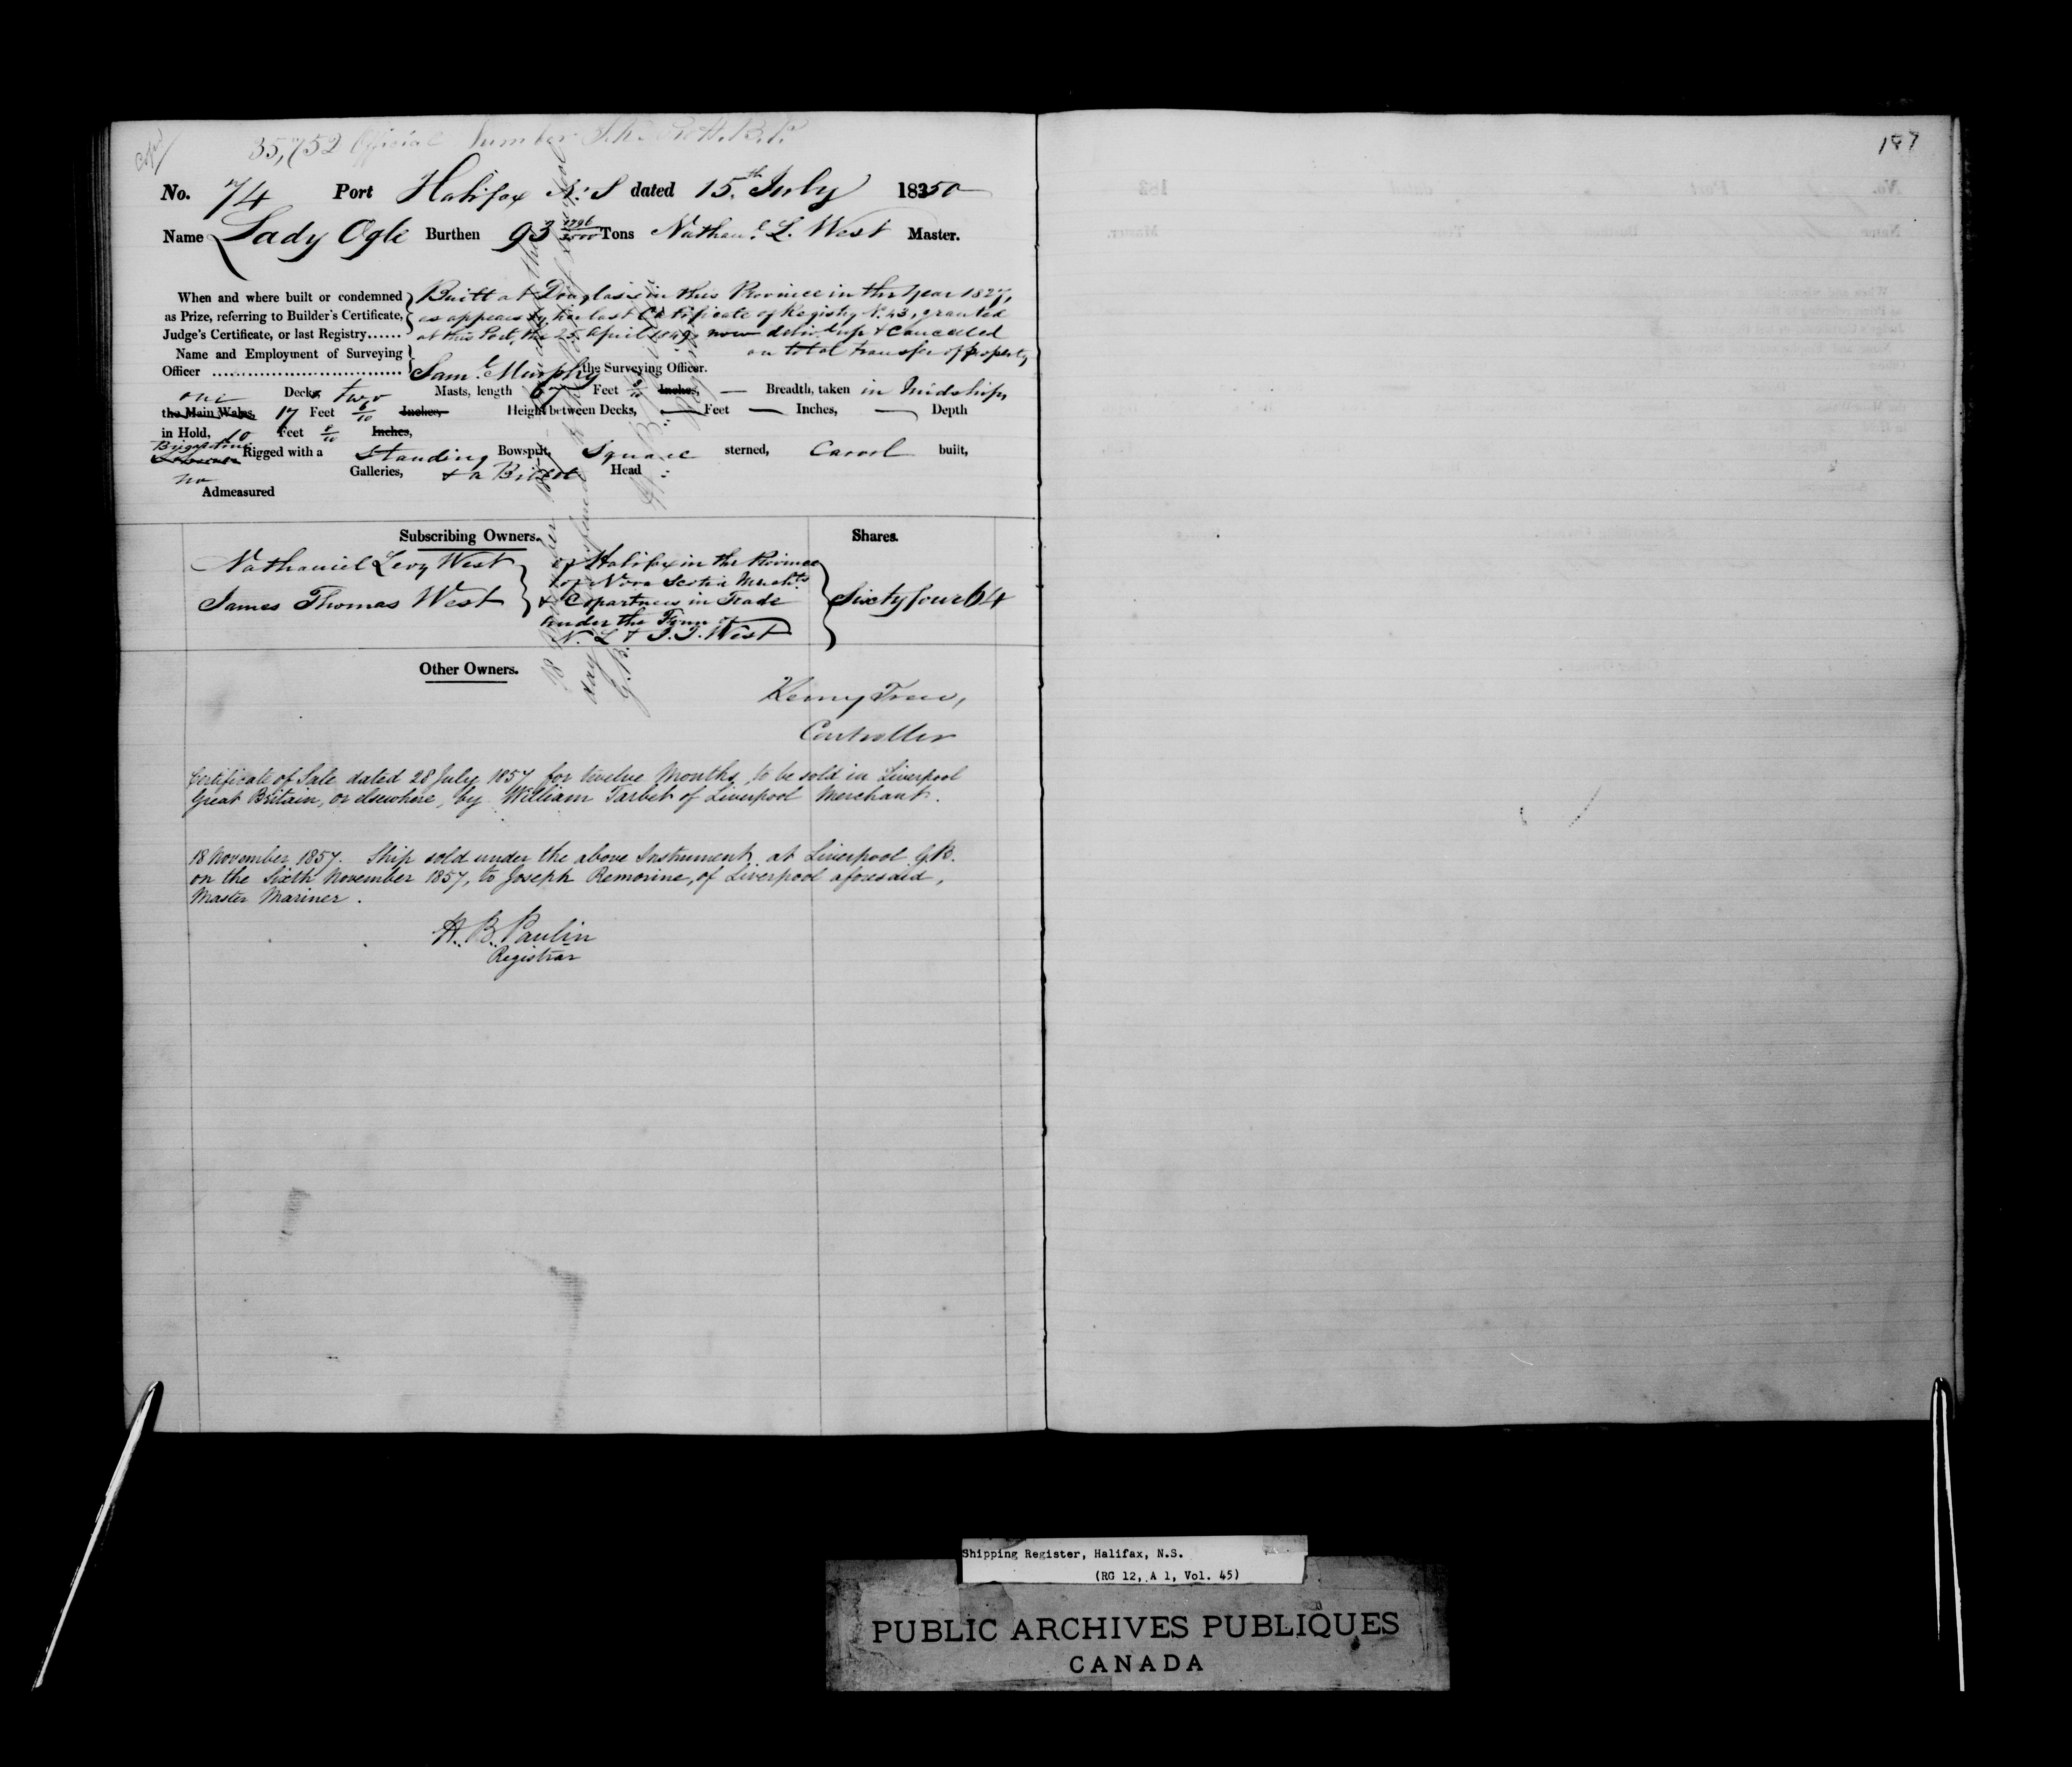 Copd
35,752 Official Number
187
No. 74 Port Halifax N. S dated 15th July 1850
Name Lady Ogle Burthen 93 1796/3500 Tons Nathanl. L. West Master.
When and where built or condemned as Prize, referring to Builder's Certificate, Judge's Certificate, or last Registry......
Built at Douglas in this Province in the Year 1827,
as appears by her last Certificate of Registry No. 43, granted
at this Port, the 25 April 1849, now delivd. up & Cancelled
on total transfer of property
Name and Employment of Surveying Officer ..............................
Saml. Murphy the Surveying Officer.
one Decks two Masts, length 67 Feet Inches, — Breadth, taken in Midships
the Main Wales, 17 Feet 6/10 Inches, Height between Decks, — Feet — Inches, — Depth
in Hold, 10 Feet Inches,
Brigantine Rigged with a Standing Bowsprit, Square sterned, Carvel built,
no Galleries, & a Billet Head
Admeasured
Subscribing Owners.
Shares.
Nathaniel Levy West
James Thomas West
of Halifax in the Province
of Nova Scotia Merchts
& Copartners in Trade
under the Firm of
N. L & J. T. West
Sixty four 64
Other Owners.
Henry Trew,
Controller
Certificate of Sale dated 28 July 1857 for twelve Months, to be sold in Liverpool
Great Britain, or elsewhere, by William Tarbet of Liverpool Merchant.
18 November 1857. Ship sold under the above Instrument at Liverpool G.B.
on the Sixth November 1857, to Joseph Remorine, of Liverpool aforesaid,
Master Mariner.
H. B. Paulin
Registrar
Shipping Register, Halifax, N.S.
(RG 12, A 1, Vol. 45)
PUBLIC ARCHIVES PUBLIQUES
CANADA